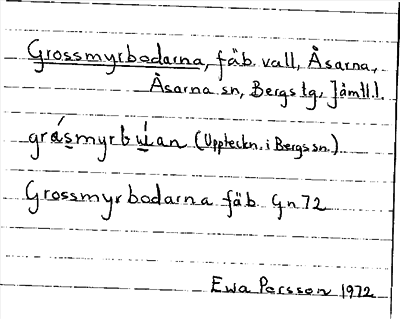 Grossmyrbodarna, fäb. vall, Åsarna,
Åsarna sn, Bergs tg, Jämtl.l.
grá̱s̱myrbú̱ḻan (Uppteckn. i Bergs sn.)
Grossmyrbodarna fäb. Gn 72
Ewa Persson 1972